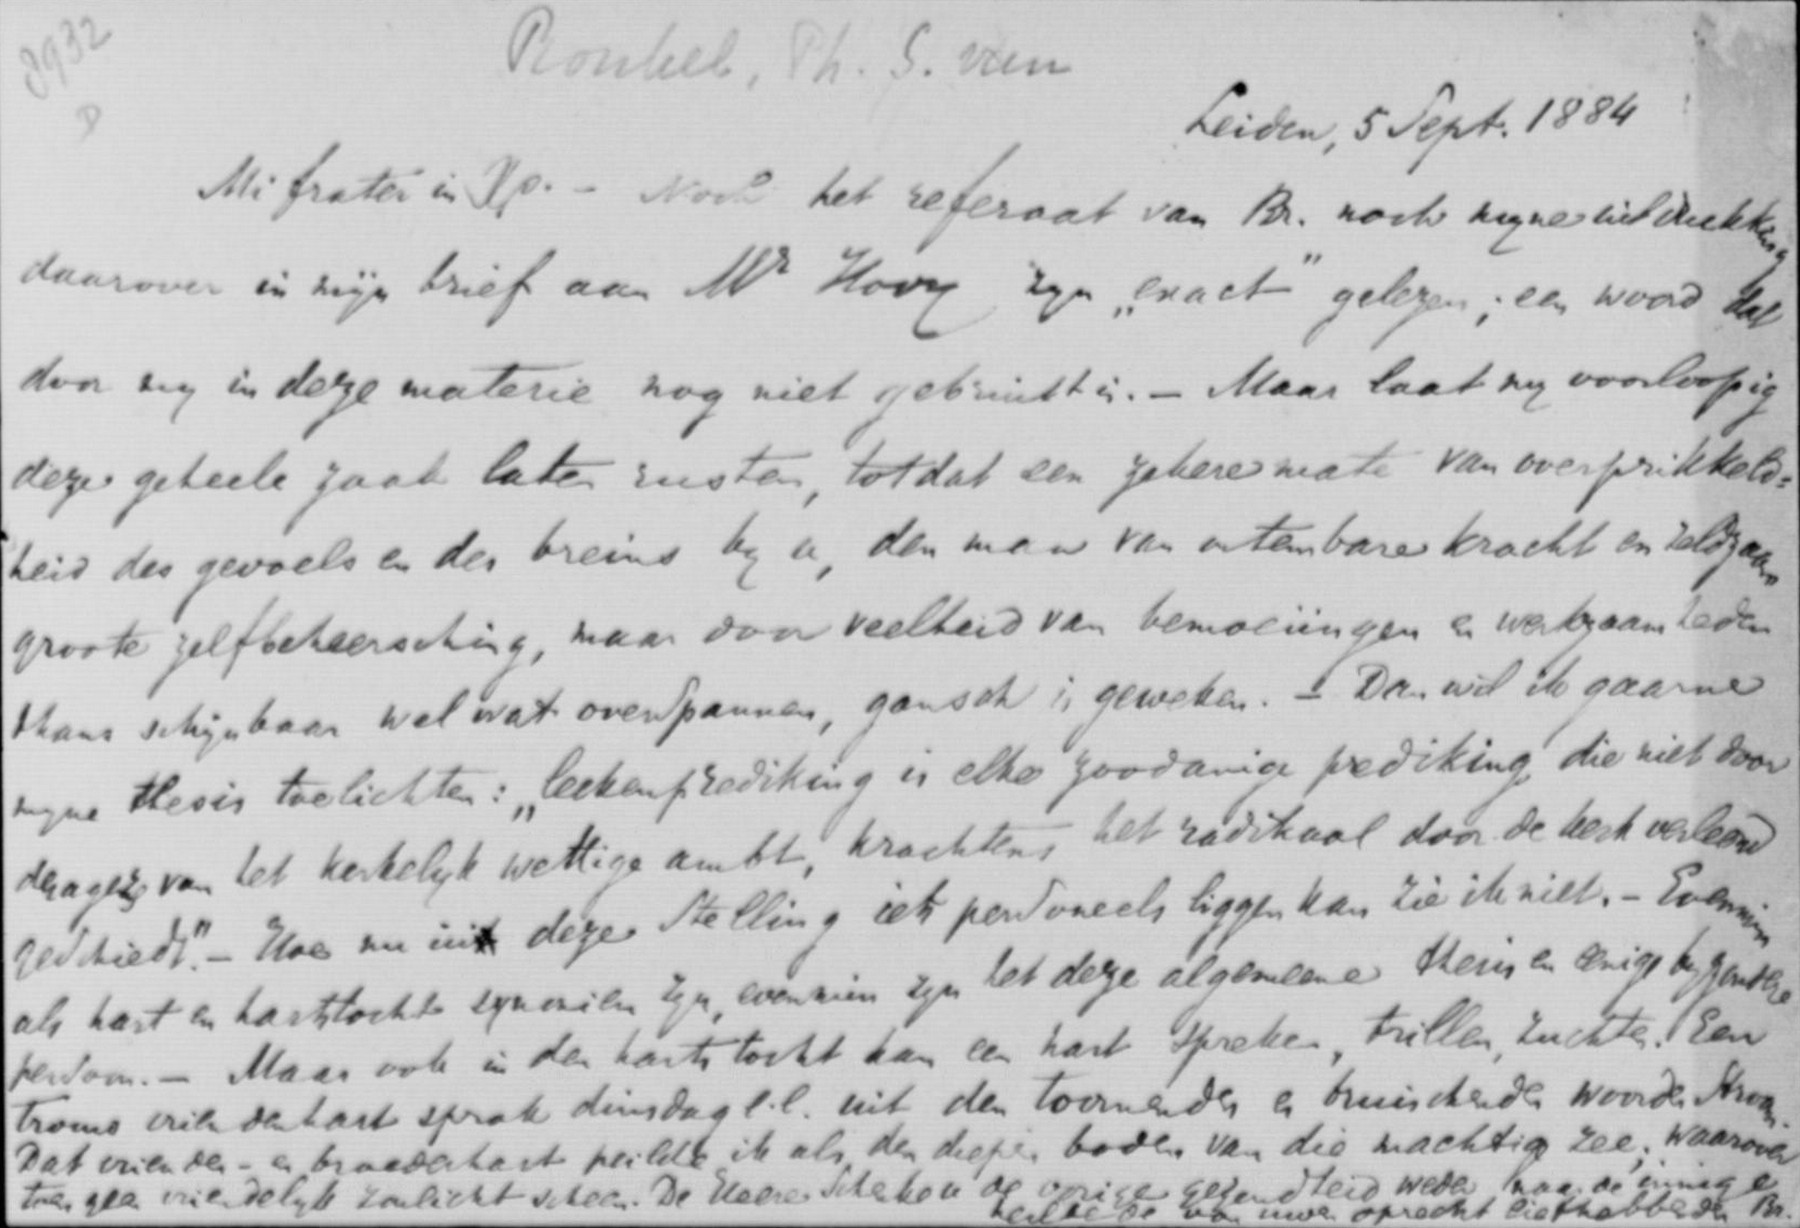 8932
D
Ronkel, Ph. S. van
Leiden, 5 Sept. 1884
Mi frater in Xp. - Noch het referaat van Br. noch myne uitdrukking
daarover in mijn brief aan Mr Hovy zyn „exact" gelezen; een woord dat
door my in deze materie nog niet gebruikt is. - Maar laat my voorloopig
deze geheele zaak laten rusten, totdat een zekere mate van overprikkeld=
heid des gevoels en des breins by u, den man van ontembare kracht en zeldzaam
groote zelfbeheersching, maar door veelheid van bemoeiingen en werkzaamheden
thans schijnbaar wel wat overspannen, gansch is geweken. - Dan wil ik gaarne
myne thesis toelichten: „leekenprediking is elke zoodanige prediking die niet door
dragers van het kerkelyk wettige ambt, krachtens het radikaal door de kerk verleend
geschiedt". - Hoe nu uit deze stelling iets personeels liggen kan zie ik niet. - Evenmin
als hart en hartstocht synoniem zyn, evenmin zyn het deze algemeene thesis en eenige byzondere
persoon. - Maar ook in den hartstocht kan een hart spreken, trillen, zuchten. Een
trouw vriendenhart sprak dinsdag l.l. uit den toornenden en bruischenden woordenstroom.
Dat vrienden- en broederhart peilde ik als den diepen bodem van die machtige zee, waarover
toen geen vriendelyk zonlicht scheen. De Heere schenke u de vorige gezondheid weder naar de innige
heilbede van uwen oprecht liefhebbenden Br.